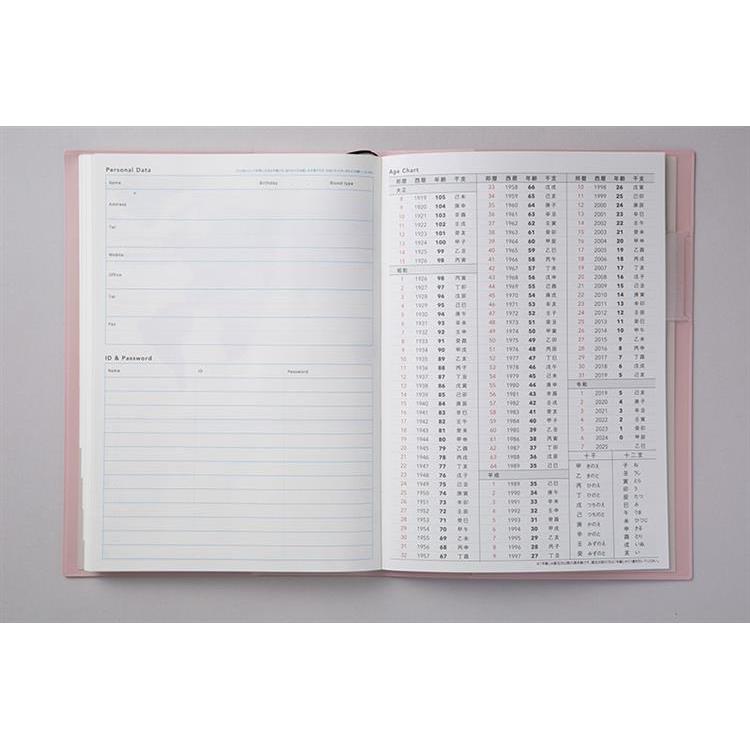 Personal Data
Name Birthday Blood type
Address
Tel
Mobile
Office
Tel
Fax
ID & Password
Name ID Password
Age Chart
邦暦 西暦 年齢 干支
大正
8 1919 105 己未
9 1920 104 庚申
10 1921 103 辛酉
11 1922 102 壬戌
12 1923 101 癸亥
13 1924 100 甲子
14 1925 99 乙丑
15 1926 98 丙寅
昭和
1 1926 98 丙寅
2 1927 97 丁卯
3 1928 96 戊辰
4 1929 95 己巳
5 1930 94 庚午
6 1931 93 辛未
7 1932 92 壬申
8 1933 91 癸酉
9 1934 90 甲戌
10 1935 89 乙亥
11 1936 88 丙子
12 1937 87 丁丑
13 1938 86 戊寅
14 1939 85 己卯
15 1940 84 庚辰
16 1941 83 辛巳
17 1942 82 壬午
18 1943 81 癸未
19 1944 80 甲申
20 1945 79 乙酉
21 1946 78 丙戌
22 1947 77 丁亥
23 1948 76 戊子
24 1949 75 己丑
25 1950 74 庚寅
26 1951 73 辛卯
27 1952 72 壬辰
28 1953 71 癸巳
29 1954 70 甲午
30 1955 69 乙未
31 1956 68 丙申
32 1957 67 丁酉
邦暦 西暦 年齢 干支
33 1958 66 戊戌
34 1959 65 己亥
35 1960 64 庚子
36 1961 63 辛丑
37 1962 62 壬寅
38 1963 61 癸卯
39 1964 60 甲辰
40 1965 59 乙巳
41 1966 58 丙午
42 1967 57 丁未
43 1968 56 戊申
44 1969 55 己酉
45 1970 54 庚戌
46 1971 53 辛亥
47 1972 52 壬子
48 1973 51 癸丑
49 1974 50 甲寅
50 1975 49 乙卯
51 1976 48 丙辰
52 1977 47 丁巳
53 1978 46 戊午
54 1979 45 己未
55 1980 44 庚申
56 1981 43 辛酉
57 1982 42 壬戌
58 1983 41 癸亥
59 1984 40 甲子
60 1985 39 乙丑
61 1986 38 丙寅
62 1987 37 丁卯
63 1988 36 戊辰
64 1989 35 己巳
平成
1 1989 35 己巳
2 1990 34 庚午
3 1991 33 辛未
4 1992 32 壬申
5 1993 31 癸酉
6 1994 30 甲戌
7 1995 29 乙亥
8 1996 28 丙子
9 1997 27 丁丑
邦暦 西暦 年齢 干支
10 1998 26 戊寅
11 1999 25 己卯
12 2000 24 庚辰
13 2001 23 辛巳
14 2002 22 壬午
15 2003 21 癸未
16 2004 20 甲申
17 2005 19 乙酉
18 2006 18 丙戌
19 2007 17 丁亥
20 2008 16 戊子
21 2009 15 己丑
22 2010 14 庚寅
23 2011 13 辛卯
24 2012 12 壬辰
25 2013 11 癸巳
26 2014 10 甲午
27 2015 9 乙未
28 2016 8 丙申
29 2017 7 丁酉
30 2018 6 戊戌
31 2019 5 己亥
令和
1 2019 5 己亥
2 2020 4 庚子
3 2021 3 辛丑
4 2022 2 壬寅
5 2023 1 癸卯
6 2024 0 甲辰
7 2025 乙巳
十干 十二支
甲 きのえ 子 ね
乙 きのと 丑 うし
丙 ひのえ 寅 とら
丁 ひのと 卯 う
戊 つちのえ 辰 たつ
己 つちのと 巳 み
庚 かのえ 午 うま
辛 かのと 未 ひつじ
壬 みずのえ 申 さる
癸 みずのと 酉 とり
戌 いぬ
亥 い